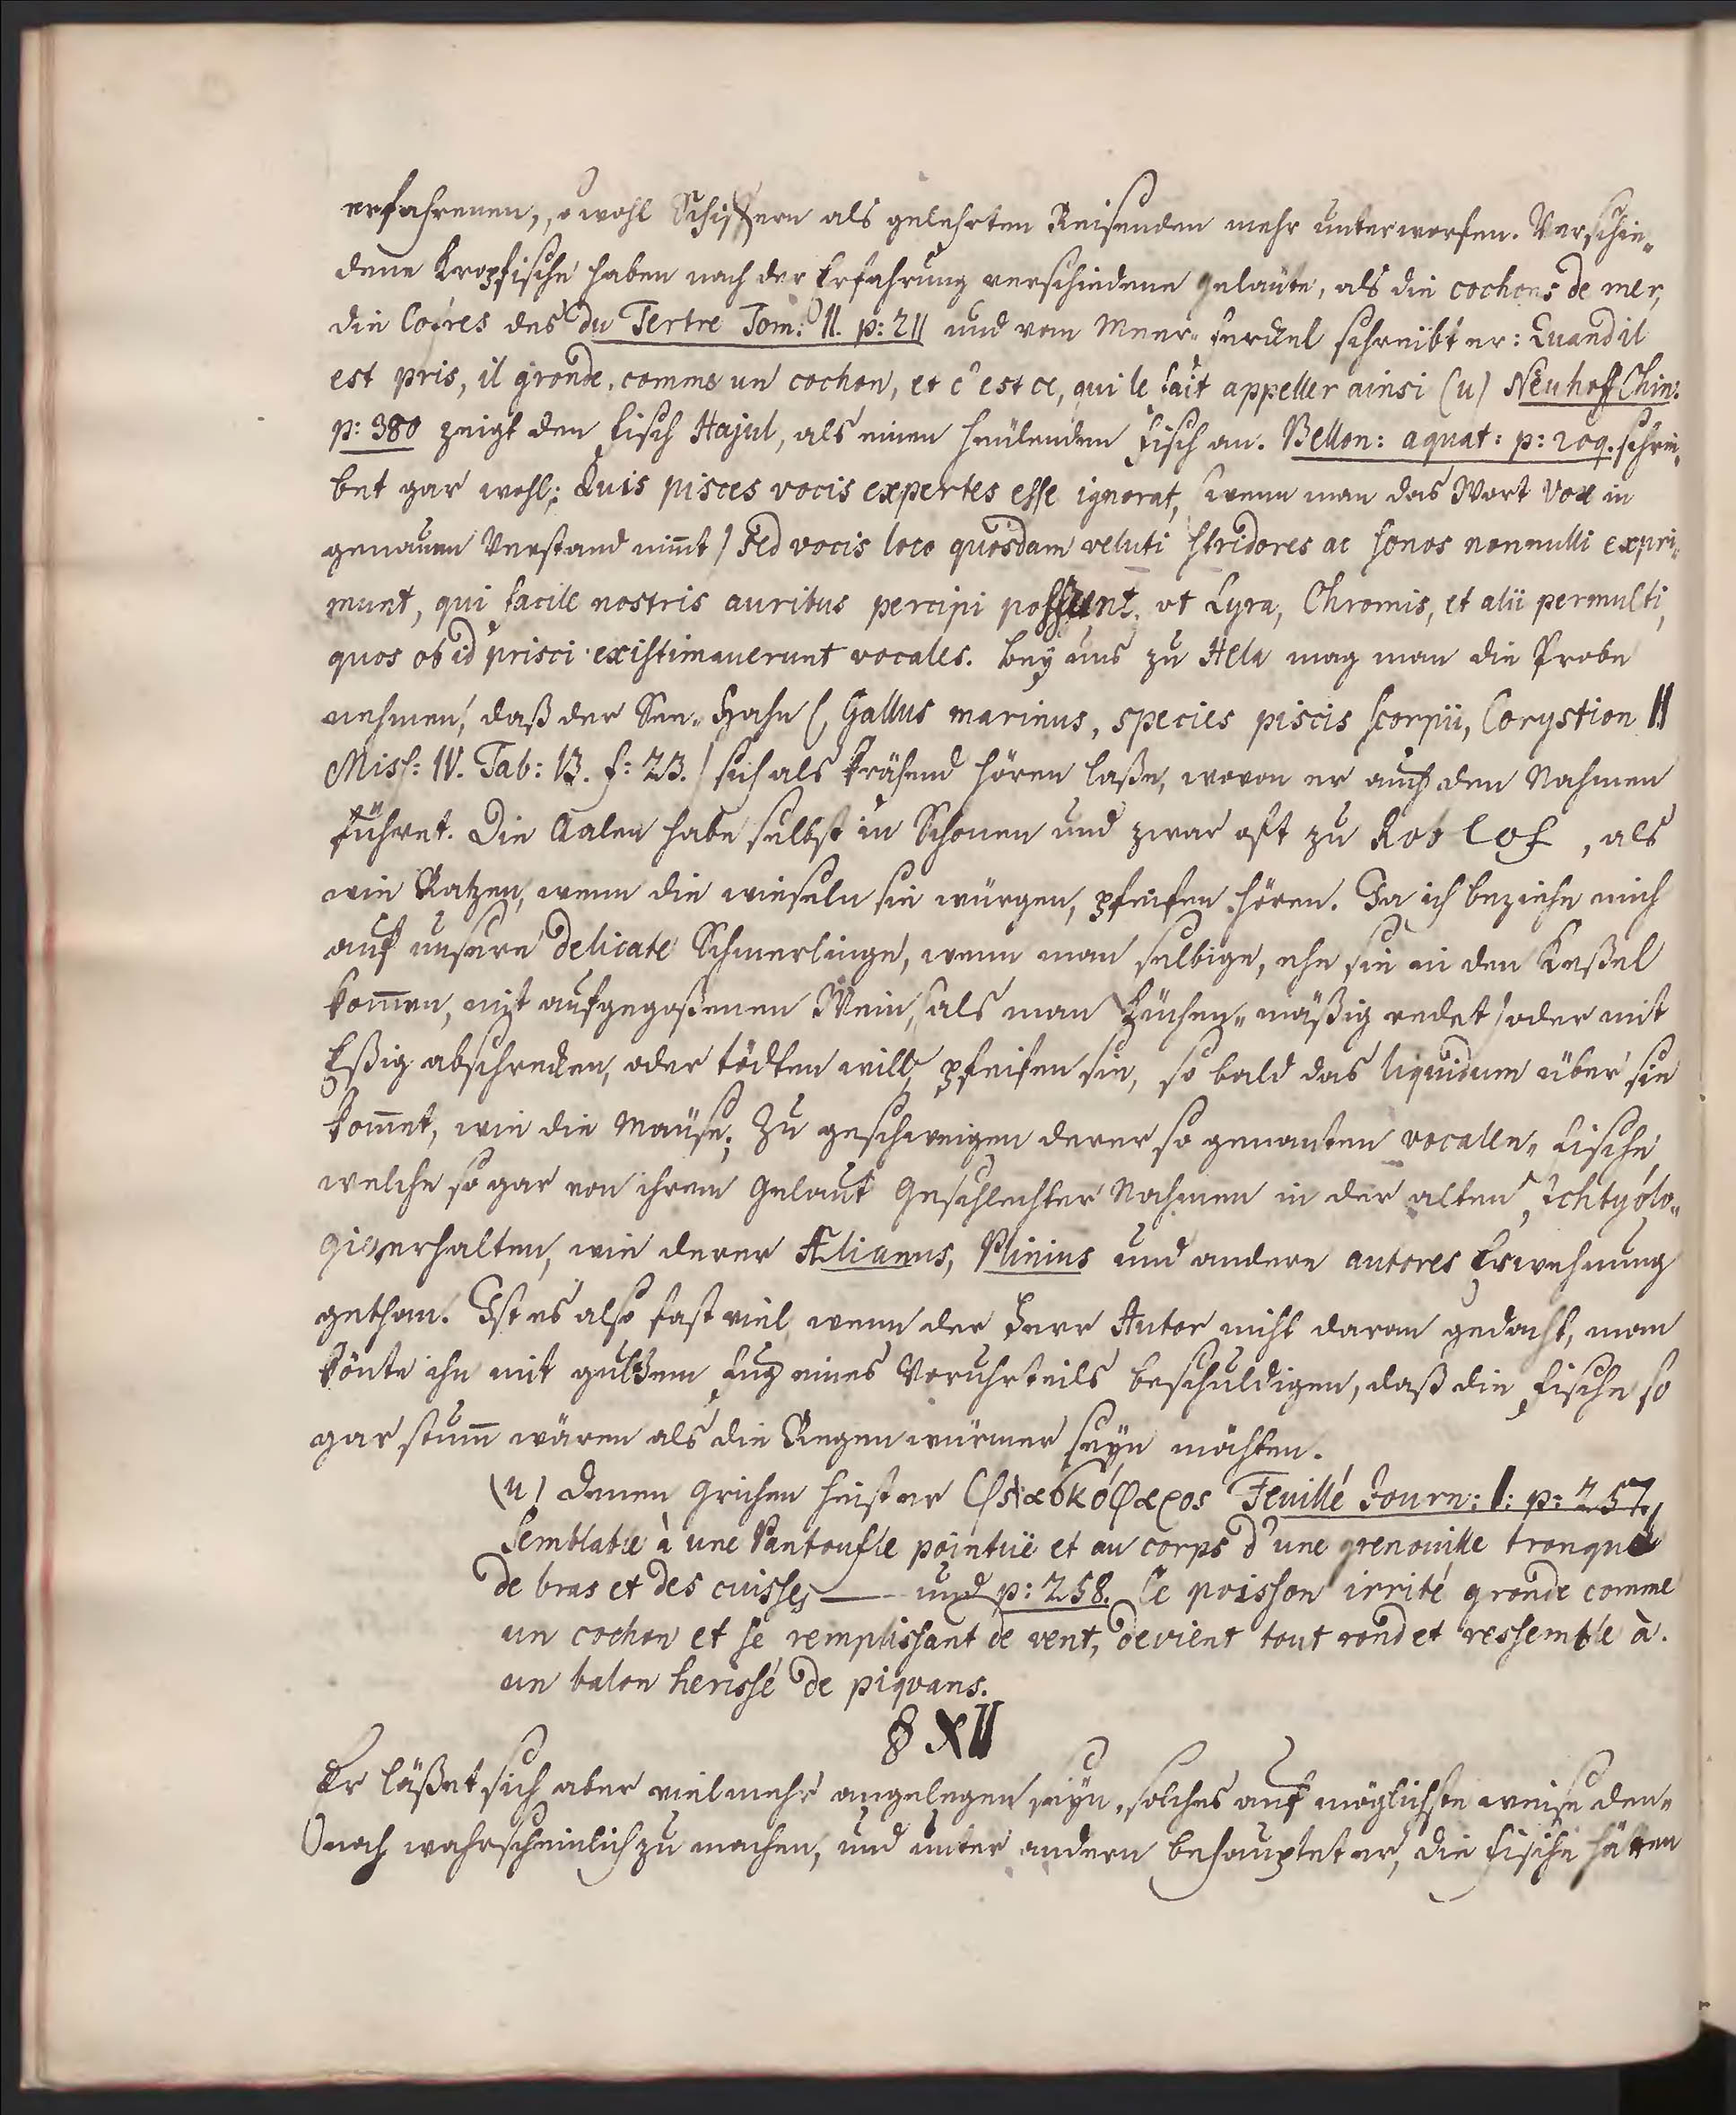 erfahrenen, sowohl Schiffern als gelehrten Reisenden mehr unterworfen. Verschie„
dene Kropffische haben nach der Erfahrung verschiedene gelaüte, als die cochons de mer,
die Cofres des du Tertre Tom: II. p: 211 und vom Meer„ ferckel schreibt er: Quand il
est pris, il gronde, comme un cochon, et c'est ce, qui le fait appeller ainsi (u) Neuhoff Chin:
p: 380 zeigt den fisch Hajul, als einen heülenden fisch an. Bellon: aquat: p: 209. schrei„
bet gar wohl: Quis pisces vocis expertes esse ignorat, (wenn man das Wort Vox in
genauen Verstand nim̄t) sed vocis loco quosdam veluti stridores ac sonos nonnulli expri„
munt, qui facile nostris auribus percipi possunt, vt Lyra, Chromis, et alii permulti,
quos ob id prisci existimauerunt vocales. Bey uns zu Hela mag man die Probe
nehmen, daß der See„ Hahn (Gallus marinus, species piscis scorpii, Corystion II
Miss: IV. Tab: 13. f: 23.) sich als krähend hören laße, wovon er auch den Nahmen
führet. Die Aalen habe selbst in Schonen und zwar oft zu Roslof, als
wie Ratzen, wenn die wieseln sie würgen, pfeifen hören. Ja ich beziehe mich
auf unsere delicate Schmerlinge, wenn man selbige, ehe sie in den Keßel
kom̄en, mit aufgegoßenen Wein, (als man Küchen„ mäßig redet) oder mit
Eßig abschrecken, oder tödten will, pfeifen sie, so bald das liquidum über sie
kom̄et, wie die Mäuse; Zu geschweigen derer so genanten vocalen„ fische
welche so gar von ihrem Gelaut Geschlechter Nahmen in der alten Ichtyolo„
gie erhalten, wie derer Ælianus, Plinius und andere autores Erwehnung
gethan. Ist es also fast viel wenn der Herr Autor nicht daran gedacht, man
könte ihn mit gutem fug eines Voruhrteils beschuldigen, daß die fische so
gar stum̄ wären als die Regenwürmer seyn möchten.
(u) denen Grichen heist er Feuillé Journ: I: p: 257,
semblable à une Pantoufle pointuë et au corps d'une grenouille tronqué
de bras et des cuisses — und p: 258. Ce poisson irrité gronde comme
un cochon et se remplissant de vent, devient tout rond et ressemble à
un balon herissé de piqvans.
§ XII
Er läßet sich aber vielmehr angelegen seyn, solches auf möglichste weise den„
noch wahrscheinlich zu machen, und unter andern behauptet er, die fische hätten